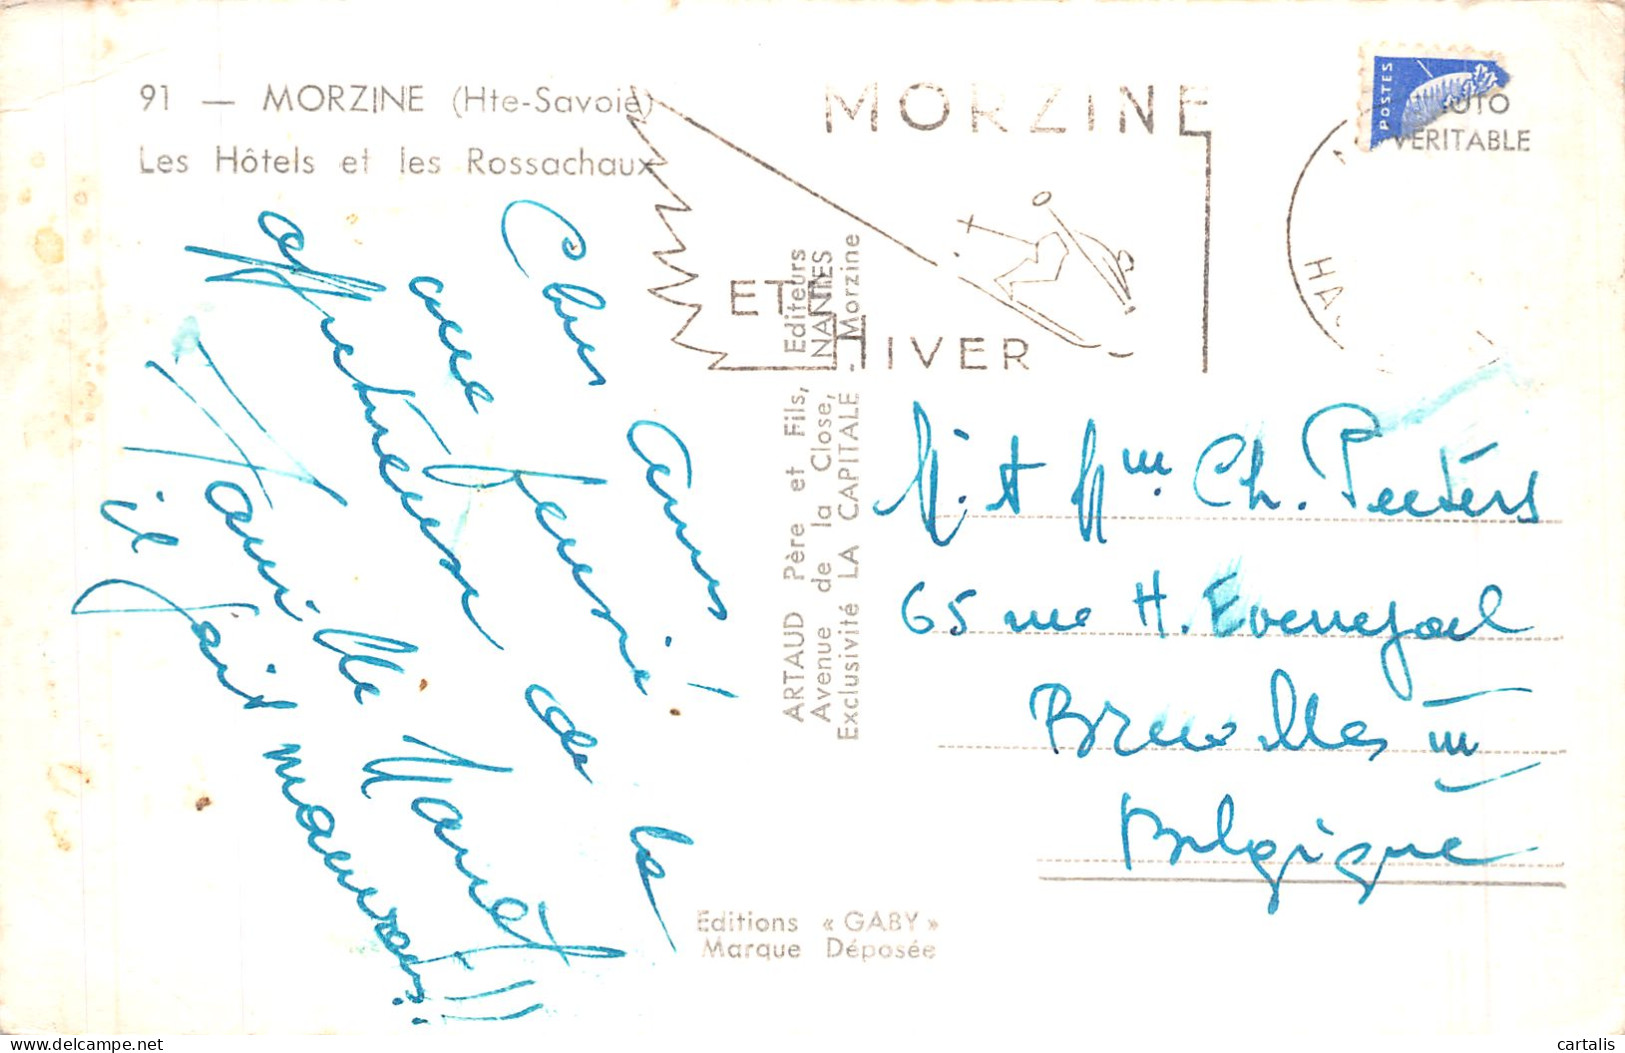 91 — MORZINE (Hte-Savoie)
Les Hôtels et les Rossachaux
MORZINE
ETE
HIVER
POSTES
VERITABLE
HA
Chers amis
une pensée!
affectueuse de la
famille Nanet
il fait mauvais!!!
ARTAUD Père et Fils, Editeurs
Avenue de la Close, NANTES
Exclusivité LA CAPITALE - Morzine
M. et Mme. Ch. Peeters
65 rue H. Evenepoel
Bruxelles III
Belgique
Editions « GABY »
Marque Déposée
cartalis
www.delcampe.net